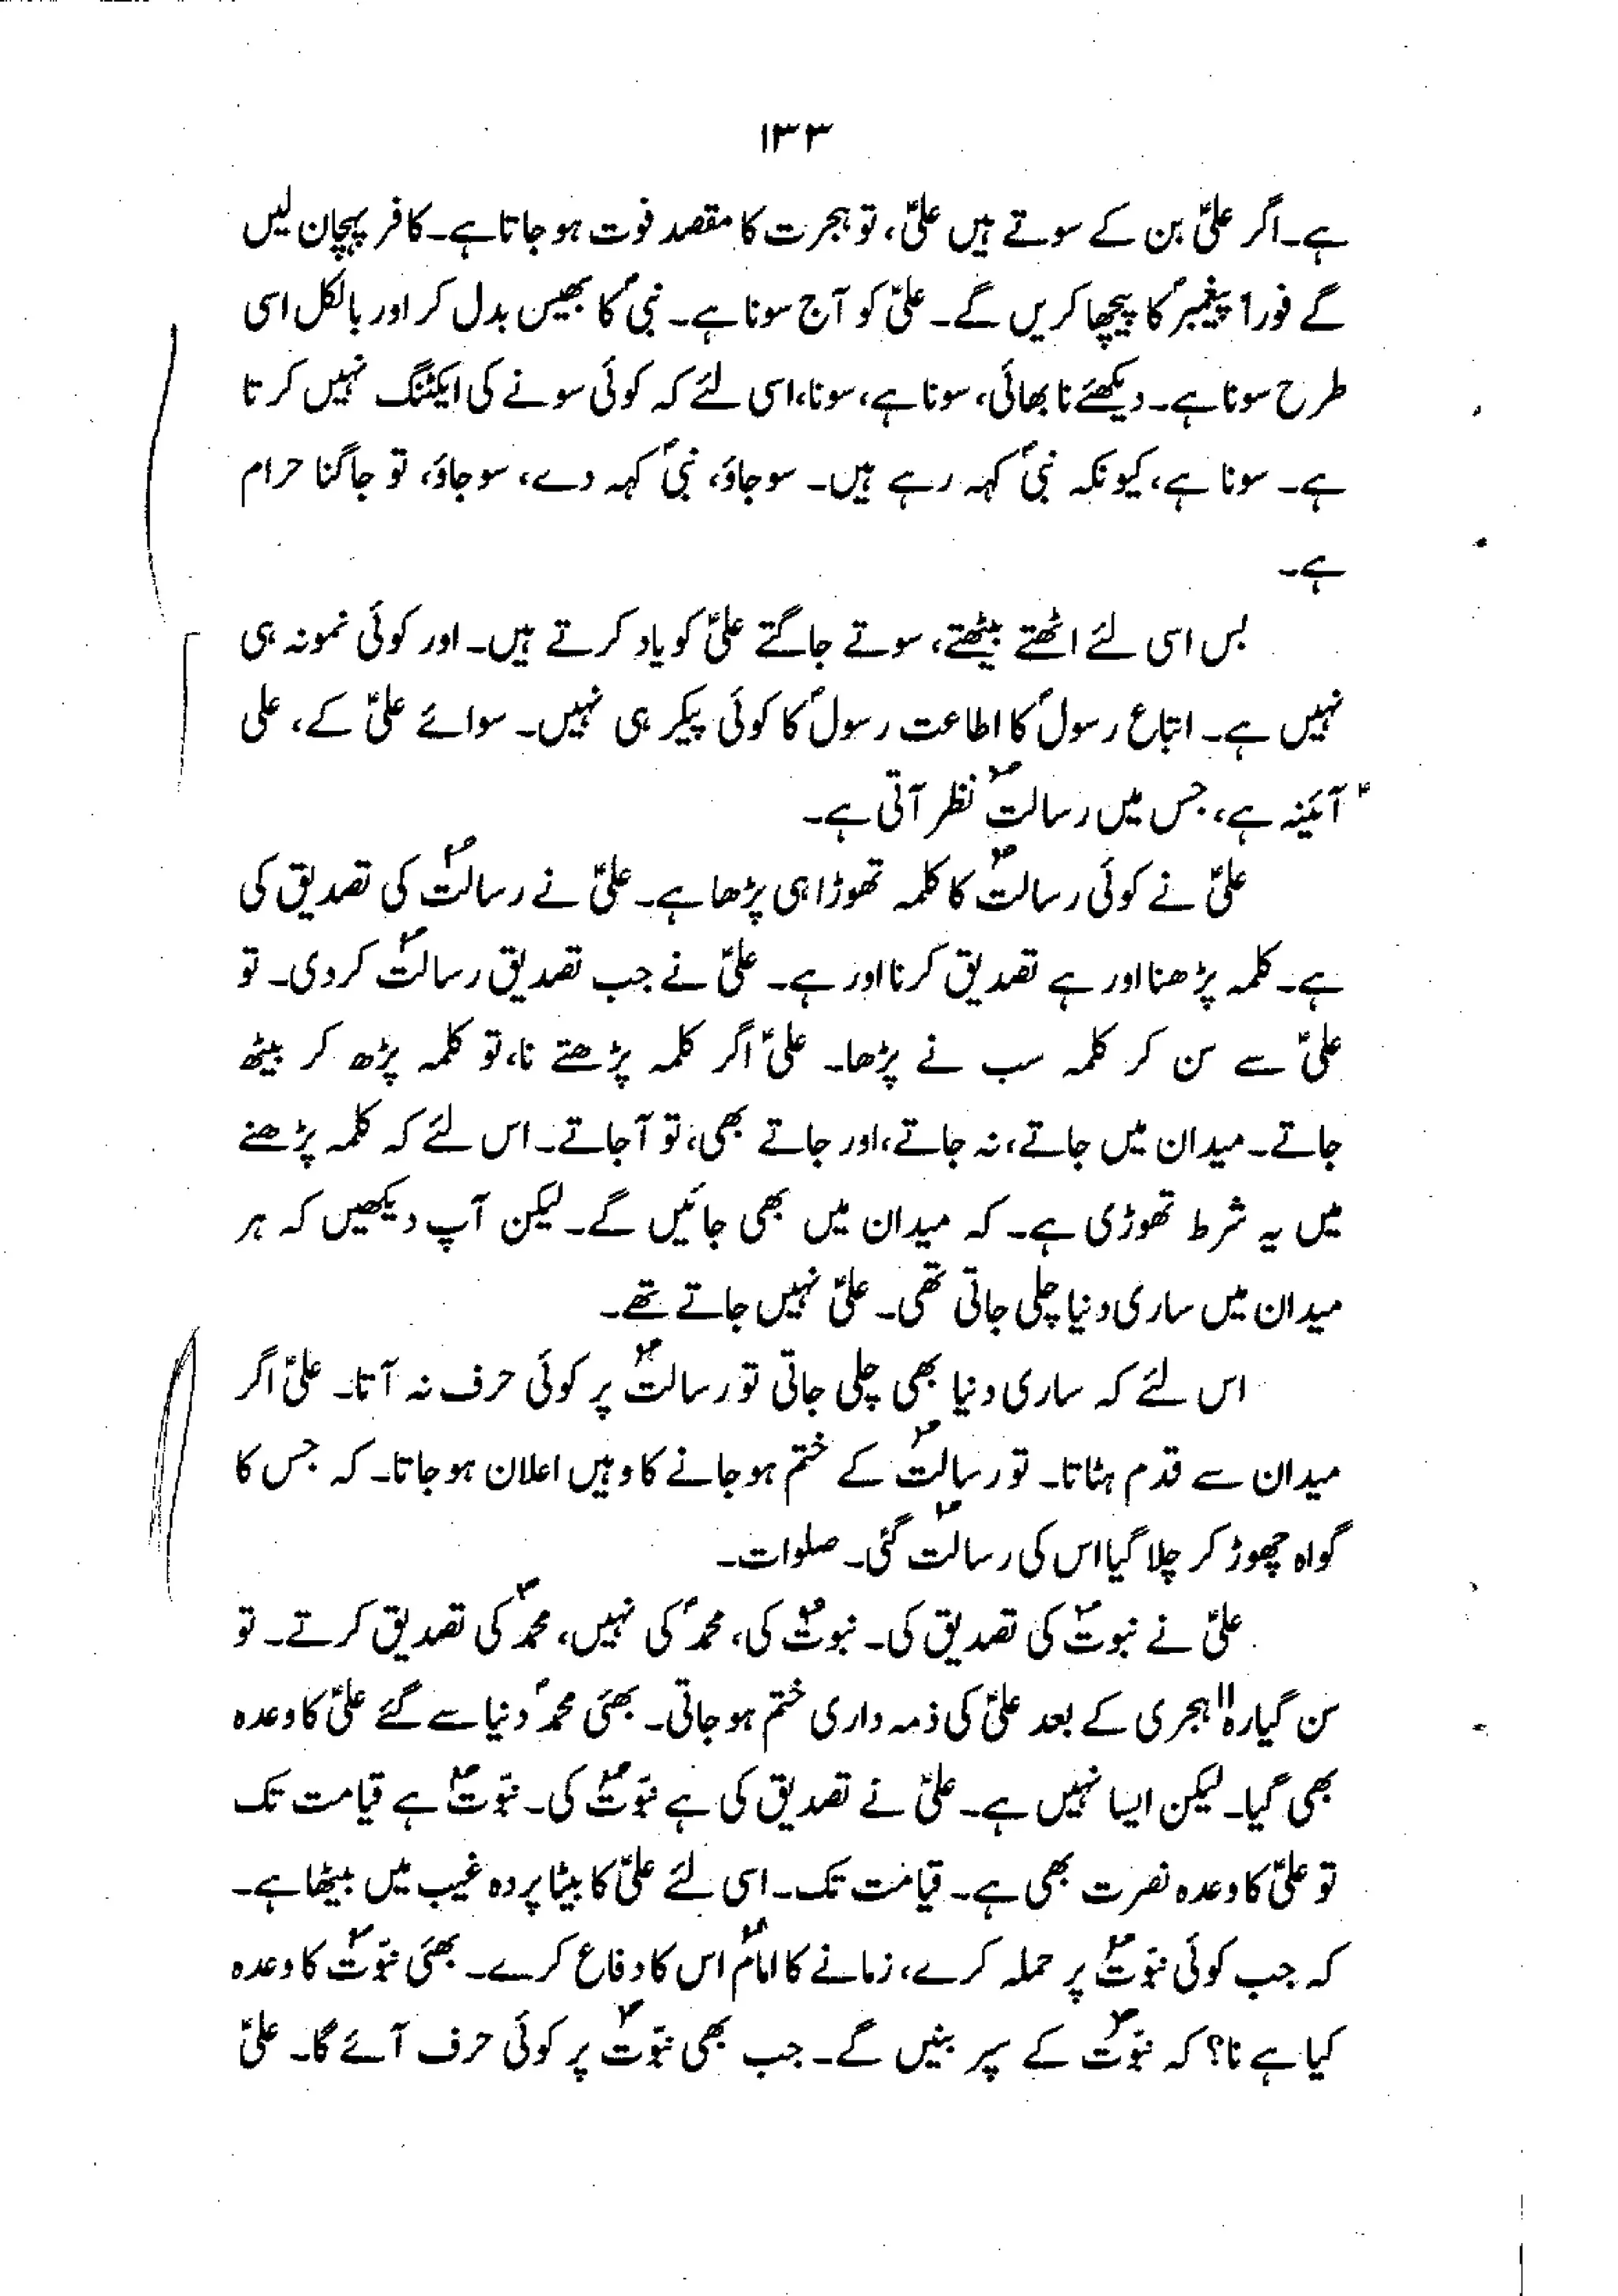 ۱۳۳
ہے۔ اگر علیؑ بن کے سوتے ہیں علیؑ، تو ہجرت کا مقصد فوت ہو جاتا ہے۔ کافر پہچان لیں
گے فوراً پیغمبرؐ کا پیچھا کریں گے۔ علیؑ کو آج سونا ہے۔ نبیؐ کا بھیس بدل کر اور بالکل اسی
طرح سونا ہے۔ دیکھئے نا بھائی، سونا ہے، سونا، اسی لئے کہ کوئی سونے کی ایکٹنگ نہیں کرتا
ہے۔ سونا ہے، کیونکہ نبیؐ کہہ رہے ہیں۔ سو جاؤ، نبیؐ کہہ دے، سو جاؤ، تو جاگنا حرام
ہے۔
بس اسی لئے اٹھتے بیٹھتے، سوتے جاگتے علیؑ کو یاد کرتے ہیں۔ اور کوئی نمونہ ہی
نہیں ہے۔ اتباع رسولؐ کا اطاعت رسولؐ کا کوئی پیکر ہی نہیں۔ سوائے علیؑ کے، علی
آئینہ ہے، جس میں رسالتؐ نظر آتی ہے۔
علیؑ نے کوئی رسالتؐ کا کلمہ تھوڑا ہی پڑھا ہے۔ علیؑ نے رسالتؐ کی تصدیق کی
ہے۔ کلمہ پڑھنا اور ہے تصدیق کرنا اور ہے۔ علیؑ نے جب تصدیق رسالتؐ کر دی۔ تو
علیؑ سے سن کر کلمہ سب نے پڑھا۔ علیؑ اگر کلمہ پڑھتے نا، تو کلمہ پڑھ کر بیٹھ
جاتے۔ میدان میں جاتے، نہ جاتے، اور جاتے بھی، تو آجاتے۔ اس لئے کہ کلمہ پڑھنے
میں یہ شرط تھوڑی ہے۔ کہ میدان میں بھی جائیں گے۔ لیکن آپ دیکھیں کہ ہر
میدان میں ساری دنیا چلی جاتی تھی۔ علیؑ نہیں جاتے تھے۔
اس لئے کہ ساری دنیا بھی چلی جاتی تو رسالتؐ پر کوئی حرف نہ آتا۔ علیؑ اگر
میدان سے قدم ہٹاتا۔ تو رسالتؐ کے ختم ہو جانے کا وہیں اعلان ہو جاتا۔ کہ جس کا
گواہ چھوڑ کر چلا گیا اس کی رسالتؐ گئی۔ صلوات۔
علیؑ نے نبوتؐ کی تصدیق کی۔ نبوتؐ کی، محمدؐ کی نہیں، محمدؐ کی تصدیق کرتے۔ تو
سن گیارہ۱۱ ہجری کے بعد علیؑ کی ذمہ داری ختم ہو جاتی۔ بھئی محمدؐ دنیا سے گئے علیؑ کا وعدہ
بھی گیا۔ لیکن ایسا نہیں ہے۔ علیؑ نے تصدیق کی ہے نبوّتؐ کی۔ نبوّتؐ ہے قیامت تک
تو علیؑ کا وعدہ نصرت بھی ہے۔ قیامت تک۔ اسی لئے علیؑ کا بیٹا پردہ غیب میں بیٹھا ہے۔
کہ جب کوئی نبوّتؐ پر حملہ کرے، زمانے کا امامؑ اس کا دفاع کرے۔ بھئی نبوّتؐ کا وعدہ
کیا ہے نا؟ کہ نبوّتؐ کے سپر بنیں گے۔ جب بھی نبوّتؐ پر کوئی حرف آئے گا۔ علیؑ